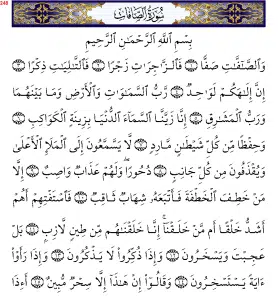 ٢٤٥
سُورَةُ الصَّافَّاتِ
بِسْمِ اللَّهِ الرَّحْمَٰنِ الرَّحِيمِ
وَالصَّٰٓفَّٰتِ صَفًّا ۝١ فَالزَّٰجِرَٰتِ زَجْرًا ۝٢ فَالتَّٰلِيَٰتِ ذِكْرًا ۝٣
إِنَّ إِلَٰهَكُمْ لَوَٰحِدٌ ۝٤ رَّبُّ السَّمَٰوَٰتِ وَالْأَرْضِ وَمَا بَيْنَهُمَا
وَرَبُّ الْمَشَٰرِقِ ۝٥ إِنَّا زَيَّنَّا السَّمَآءَ الدُّنْيَا بِزِينَةٍ الْكَوَاكِبِ ۝٦
وَحِفْظًا مِّن كُلِّ شَيْطَٰنٍ مَّارِدٍ ۝٧ لَّا يَسَّمَّعُونَ إِلَى الْمَلَإِ الْأَعْلَىٰ
وَيُقْذَفُونَ مِن كُلِّ جَانِبٍ ۝٨ دُحُورًا ۖ وَلَهُمْ عَذَابٌ وَاصِبٌ ۝٩ إِلَّا
مَنْ خَطِفَ الْخَطْفَةَ فَأَتْبَعَهُۥ شِهَابٌ ثَاقِبٌ ۝١٠ فَاسْتَفْتِهِمْ أَهُمْ
أَشَدُّ خَلْقًا أَم مَّنْ خَلَقْنَآ ۚ إِنَّا خَلَقْنَٰهُم مِّن طِينٍ لَّازِبٍۭ ۝١١ بَلْ
عَجِبْتَ وَيَسْخَرُونَ ۝١٢ وَإِذَا ذُكِّرُوا۟ لَا يَذْكُرُونَ ۝١٣ وَإِذَا رَأَوْا۟
ءَايَةً يَسْتَسْخِرُونَ ۝١٤ وَقَالُوٓا۟ إِنْ هَٰذَآ إِلَّا سِحْرٌ مُّبِينٌ ۝١٥ أَءِذَا